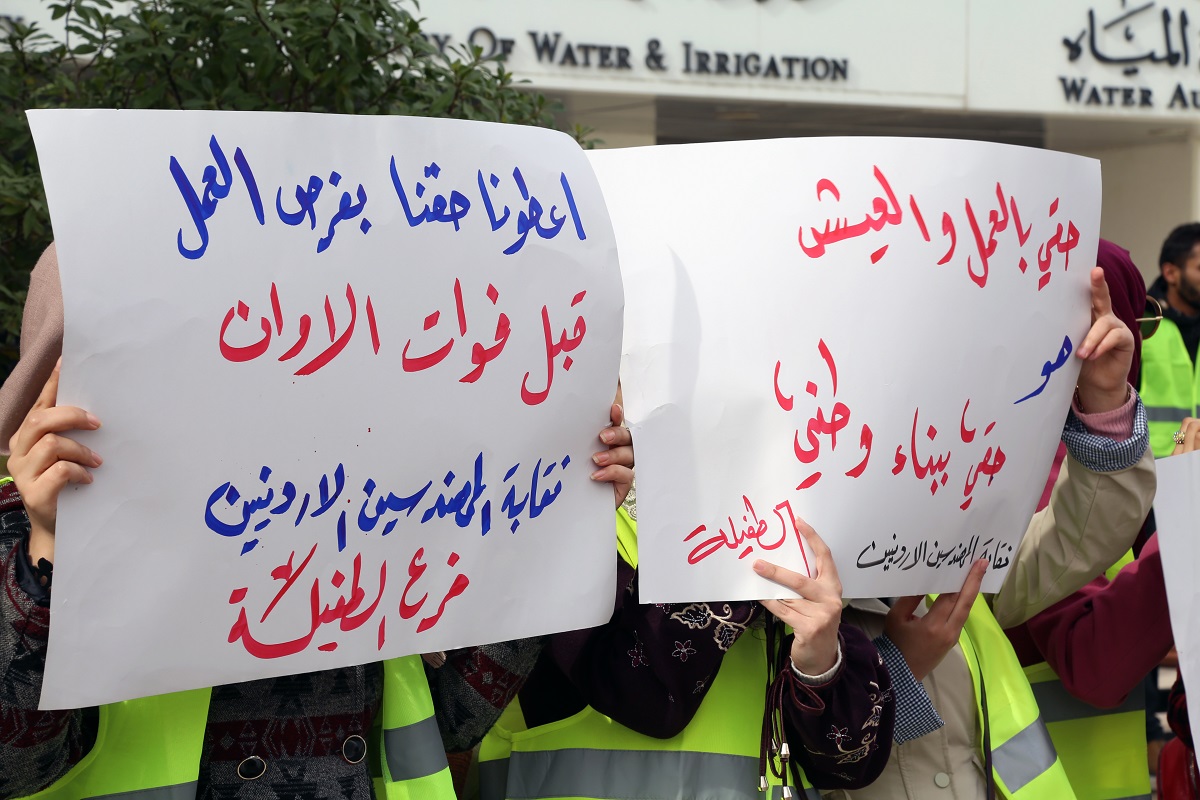 Y OF WATER & IRRIGATION
المياه
WATER AU
اعطونا حقنا بفرص العمل
قبل فوات الاوان
نقابة المهندسين الاردنيين
فرع الطفيلة
حقي بالعمل والعيش
هو
حقي ببناء وطني
نقابة المهندسين الاردنيين
الطفيلة